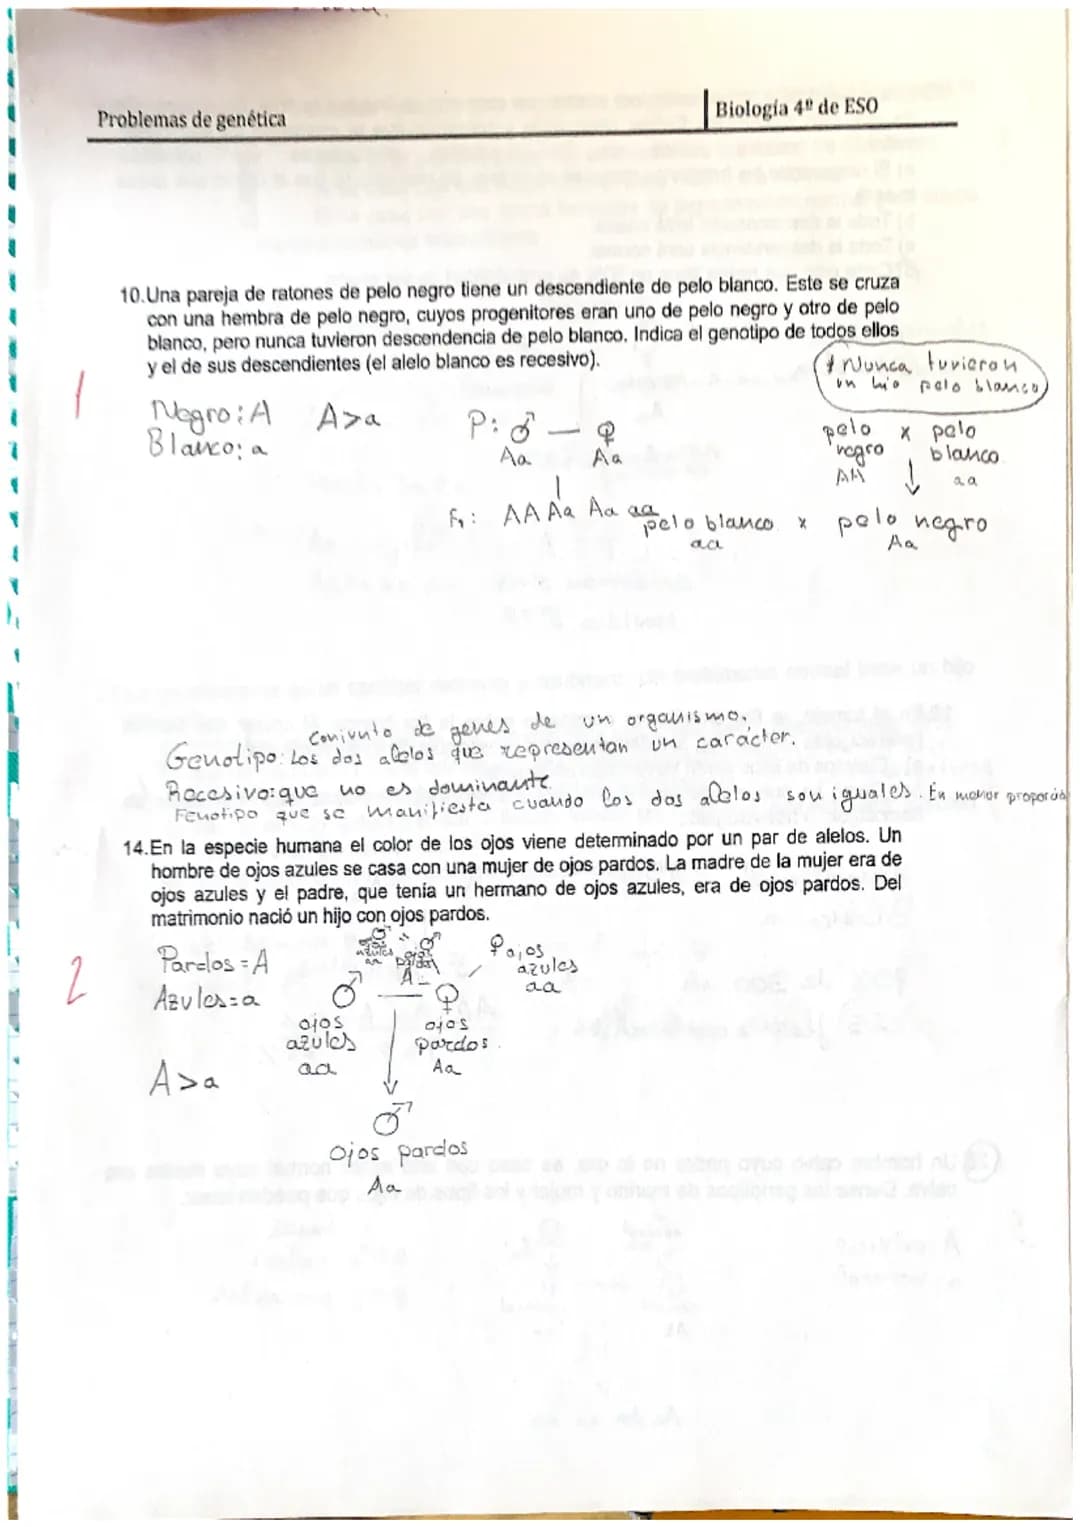 Problemas de genética
Biología 4º de ESO
10. Una pareja de ratones de pelo negro tiene un descendiente de pelo blanco. Este se cruza
con una hembra de pelo negro, cuyos progenitores eran uno de pelo negro y otro de pelo
blanco, pero nunca tuvieron descendencia de pelo blanco. Indica el genotipo de todos ellos
y el de sus descendientes (el alelo blanco es recesivo).
* Nunca tuvieron
un hijo pelo blanco
1
Negro: A A>a
Blanco: a
P: ♂ — ♀
Aa Aa
pelo negro x pelo blanco
AA aa
F1: AA Aa Aa aa
pelo blanco x pelo negro
aa Aa
Conjunto de genes de un organismo.
Genotipo: Los dos alelos que representan un carácter.
Recesivo: que no es dominante.
Fenotipo que se manifiesta cuando los dos alelos son iguales. En menor proporción
14. En la especie humana el color de los ojos viene determinado por un par de alelos. Un
hombre de ojos azules se casa con una mujer de ojos pardos. La madre de la mujer era de
ojos azules y el padre, que tenía un hermano de ojos azules, era de ojos pardos. Del
matrimonio nació un hijo con ojos pardos.
2
Pardos = A
Azules = a
A>a
♂ ojos azules aa
♂ ojos pardos A-
♀ ojos azules aa
♂ — ♀
ojos azules ojos pardos
aa Aa
♂
Ojos pardos
Aa